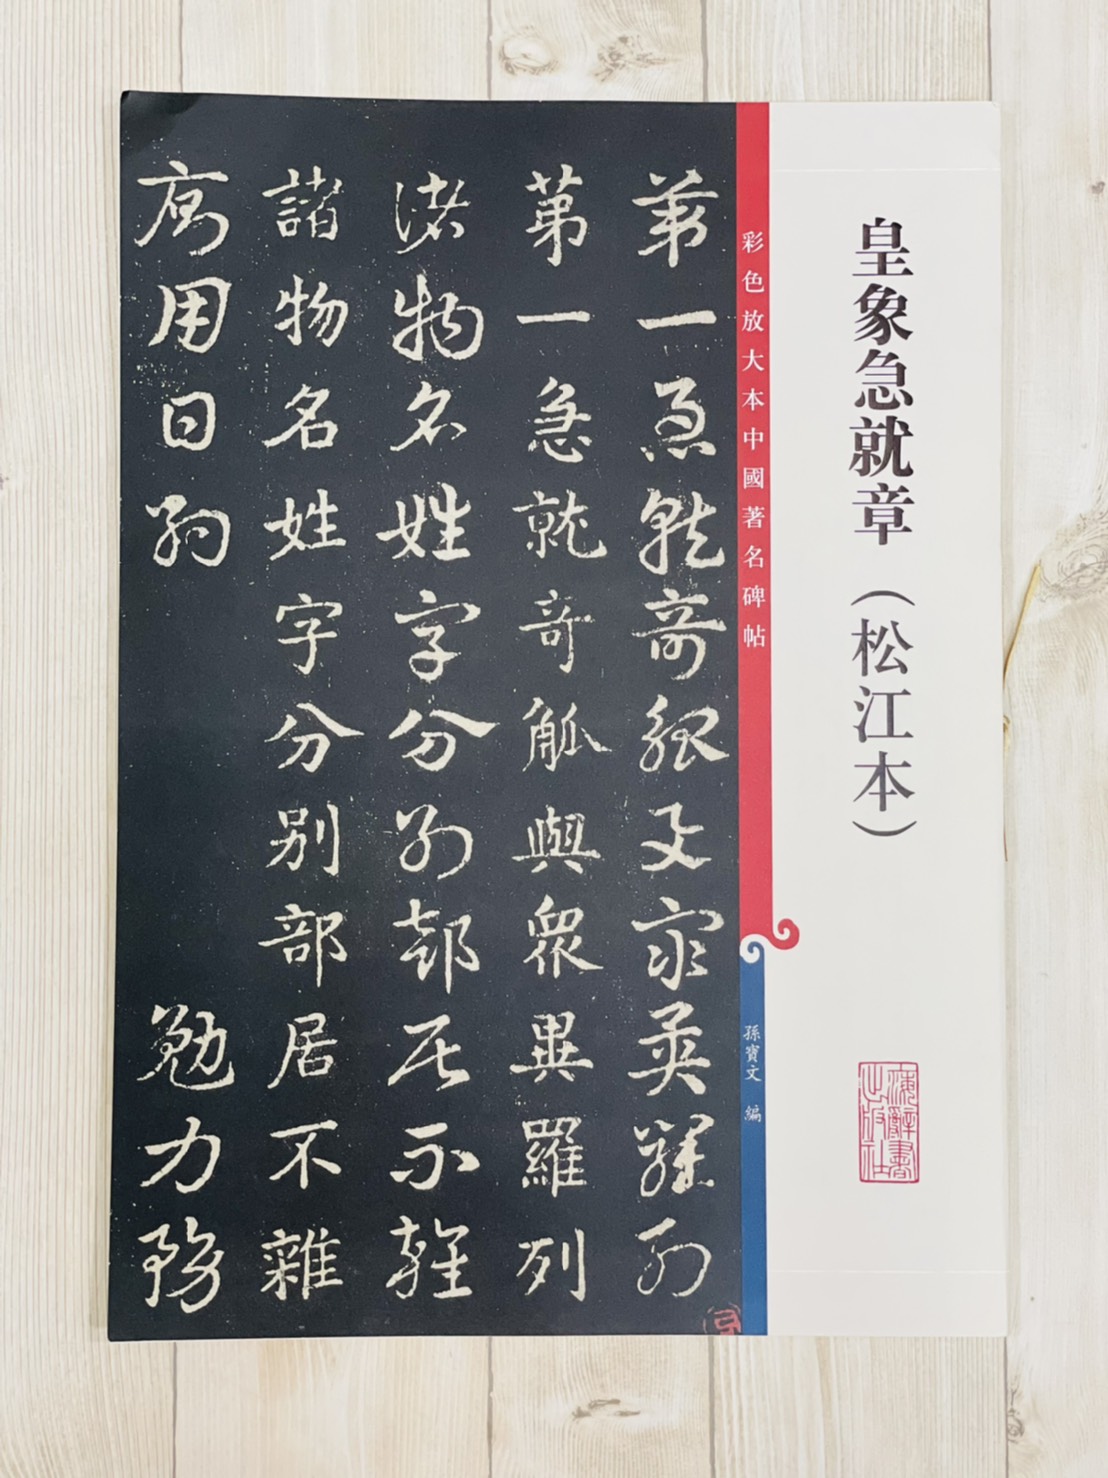 皇象急就章（松江本）
上海辭書出版社
彩色放大本中國著名碑帖
孫寶文 編
第一急就奇觚與衆異羅列
第一急就奇觚與衆異羅列
諸物名姓字分別部居不雜
諸物名姓字分別部居不雜
廁用日約 勉力務